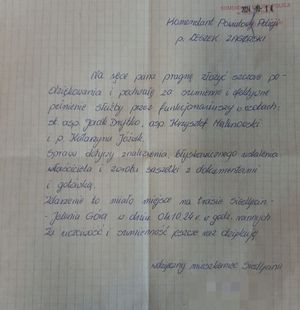 2024 -10- 1
Komendant Powiatowy Policji
p. LESZEK ZAGÓRSKI
Na ręce pana pragnę złożyć szczere po-
dziękowania i pochwałę za sumienne i efektywne
pełnienie służby przez funkcjonariuszy w osobach:
st. asp. Jacek Drytko, asp. Krzysztof Malinowski
i p. Katarzyna Józwik.
Sprawa dotyczy znalezienia, błyskawicznego ustalenia
właściciela i zwrotu saszetki z dokumentami
i gotówką.
Zdarzenie to miało miejsce na trasie Siedlęcin -
- Jelenia Góra w dniu 04.10.24 w godz. rannych.
Za uczciwość i sumienność jeszcze raz dziękuję
wdzięczny mieszkaniec Siedlęcina